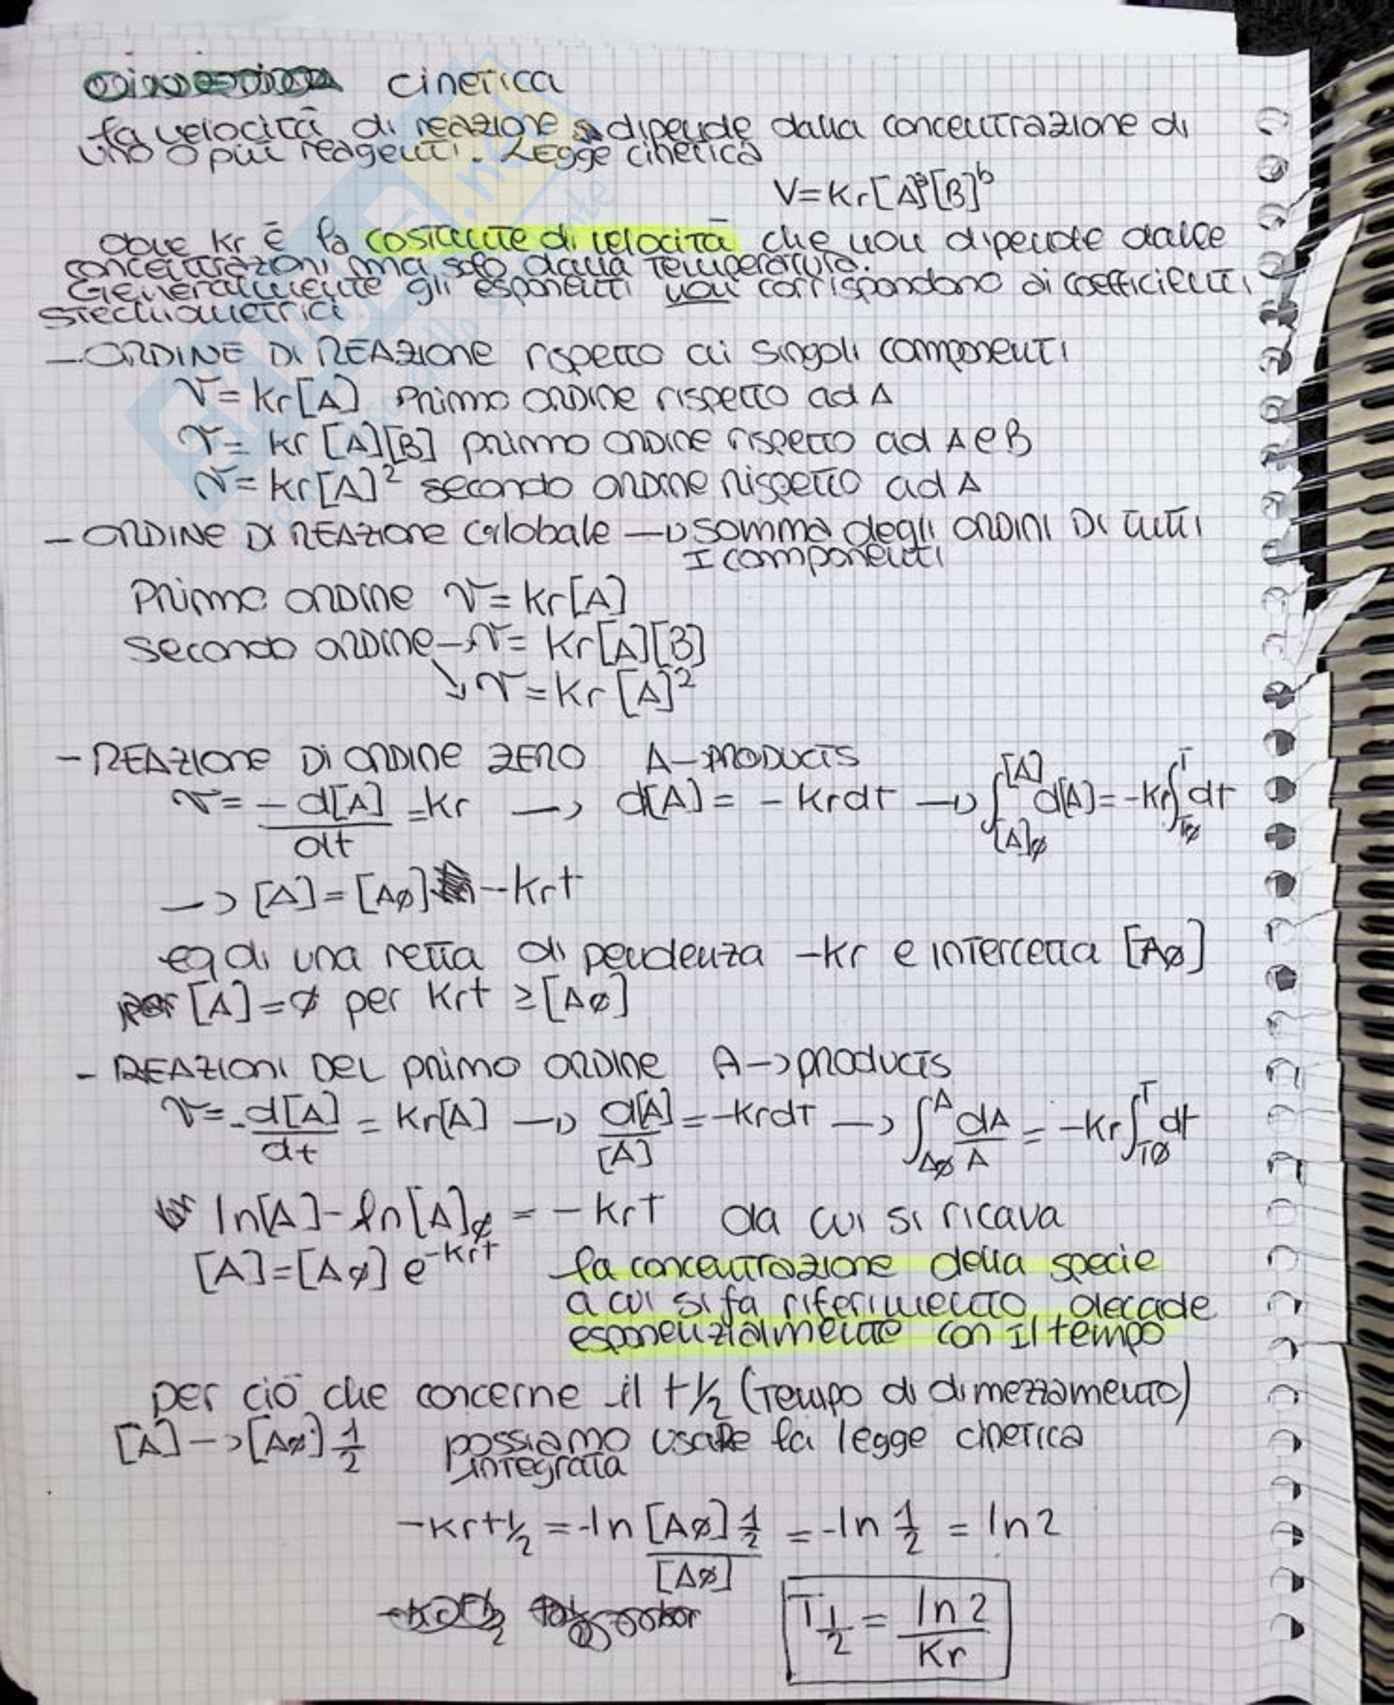 cinetica
la velocità di reazione dipende dalla concentrazione di
uno o più reagenti. Legge cinetica
V=Kr[A]ᵃ[B]ᵇ
dove Kr è la costante di velocità che non dipende dalle
concentrazioni ma solo dalla temperatura.
Generalmente gli esponenti non corrispondono ai coefficienti
stechiometrici
- ORDINE DI REAZIONE rispetto ai singoli componenti
v=Kr[A] primo ordine rispetto ad A
v= Kr[A][B] primo ordine rispetto ad A e B
v=Kr[A]² secondo ordine rispetto ad A
- ORDINE DI REAZIONE Globale → somma degli ORDINI DI tutti
I componenti
Primo ordine v=Kr[A]
secondo ordine → v= Kr[A][B]
↘ v=Kr[A]²
- REAZIONE Di ordine ZERO A→PRODUCTS
v= -d[A]/dt =Kr → d[A]= -Krdt → ∫[A]∅^[A] d[A]=-Kr∫T∅^T dt
→ [A]=[A∅] -Krt
eq di una retta di pendenza -Kr e intercetta [A∅]
[A]=∅ per Krt ≥[A∅]
- REAZIONI DEL primo ORDINE A→products
v=-d[A]/dt = Kr[A] → d[A]/[A]=-Krdt → ∫A∅^A dA/A = -Kr∫T∅^T dt
ln[A]-ln[A]∅ = -Krt da cui si ricava
[A]=[A∅] e^-Krt la concentrazione della specie
a cui si fa riferimento decade
esponenzialmente con il tempo
per ciò che concerne il t½ (Tempo di dimezzamento)
[A]→[A∅]½ possiamo usare la legge cinetica
integrata
-Krt½ =-ln [A∅]½/[A∅] =-ln ½ = ln2
T½ = ln2/Kr